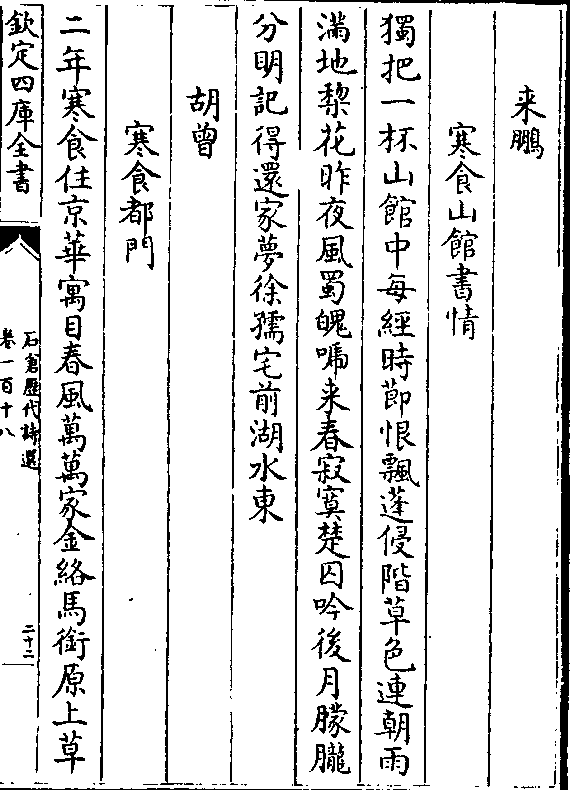 来鵬
寒食山館書情
獨把一杯山館中每經時節恨飄蓬侵階草色連朝雨
滿地梨花昨夜風蜀魄啼来春寂寞楚囚吟後月朦朧
分明記得還家夢徐孺宅前湖水東
胡曾
寒食都門
二年寒食住京華寓目春風萬萬家金絡馬銜原上草
欽定四庫全書
石倉歷代詩選
卷一百十八
二十二